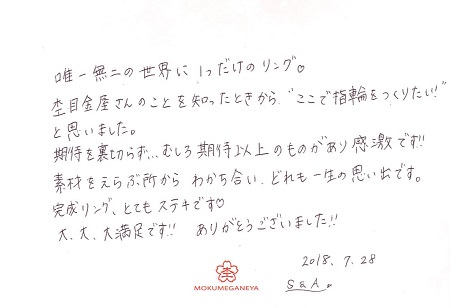 唯一無二の世界に1つだけのリング。
杢目金屋さんのことを知ったときから、"ここで指輪をつくりたい!"
と思いました。
期待を裏切らず…むしろ期待以上のものがあり感激です!!
素材をえらぶ所から わかち合い、どれも一生の思い出です。
完成リング、とてもステキです♡
大、大、大満足です!! ありがとうございました!!
2018.7.28
S&A。
MOKUMEGANEYA